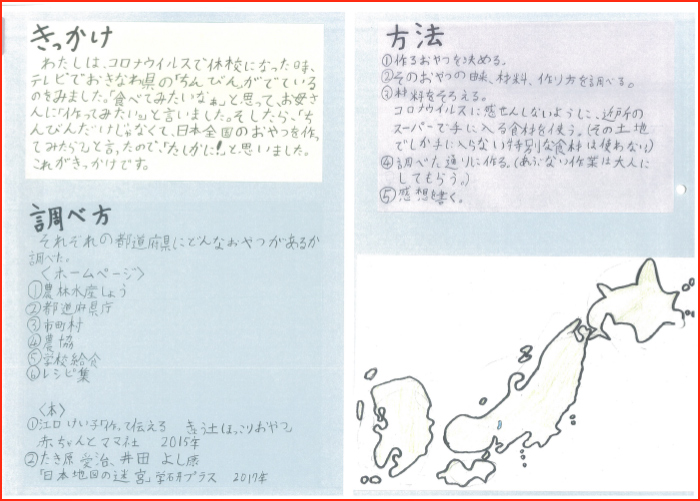 きっかけ
わたしは、コロナウイルスで休校になった時、
テレビでおきなわ県の「ちんびん」がでている
のをみました。「食べてみたいなぁ」と思って、お母さ
んに「作ってみたい」と言いました。そしたら、「ち
んびんだけじゃなくて、日本全国のおやつを作っ
てみたら?」と言ったので、「たしかに!」と思いました。
これがきっかけです。
調べ方
それぞれの都道府県にどんなおやつがあるか
調べた。
〈ホームページ〉
①農林水産しょう
②都道府県庁
③市町村
④農協
⑤学校給食
⑥レシピ集
〈本〉
①江口けい子 作って伝える ほっこりおやつ
赤ちゃんとママ社 2015年
②たき原 井田 よし
「日本地図の迷宮」学研プラス 2017年
方法
①作るおやつを決める。
②そのおやつの由来、材料、作り方を調べる。
③材料をそろえる。
コロナウイルスに感せんしないように、近所の
スーパーで手に入る食材を使う。(その土地
でしか手に入らない特別な食材は使わない)
④調べた通りに作る。(あぶない作業は大人に
してもらう。)
⑤感想を書く。